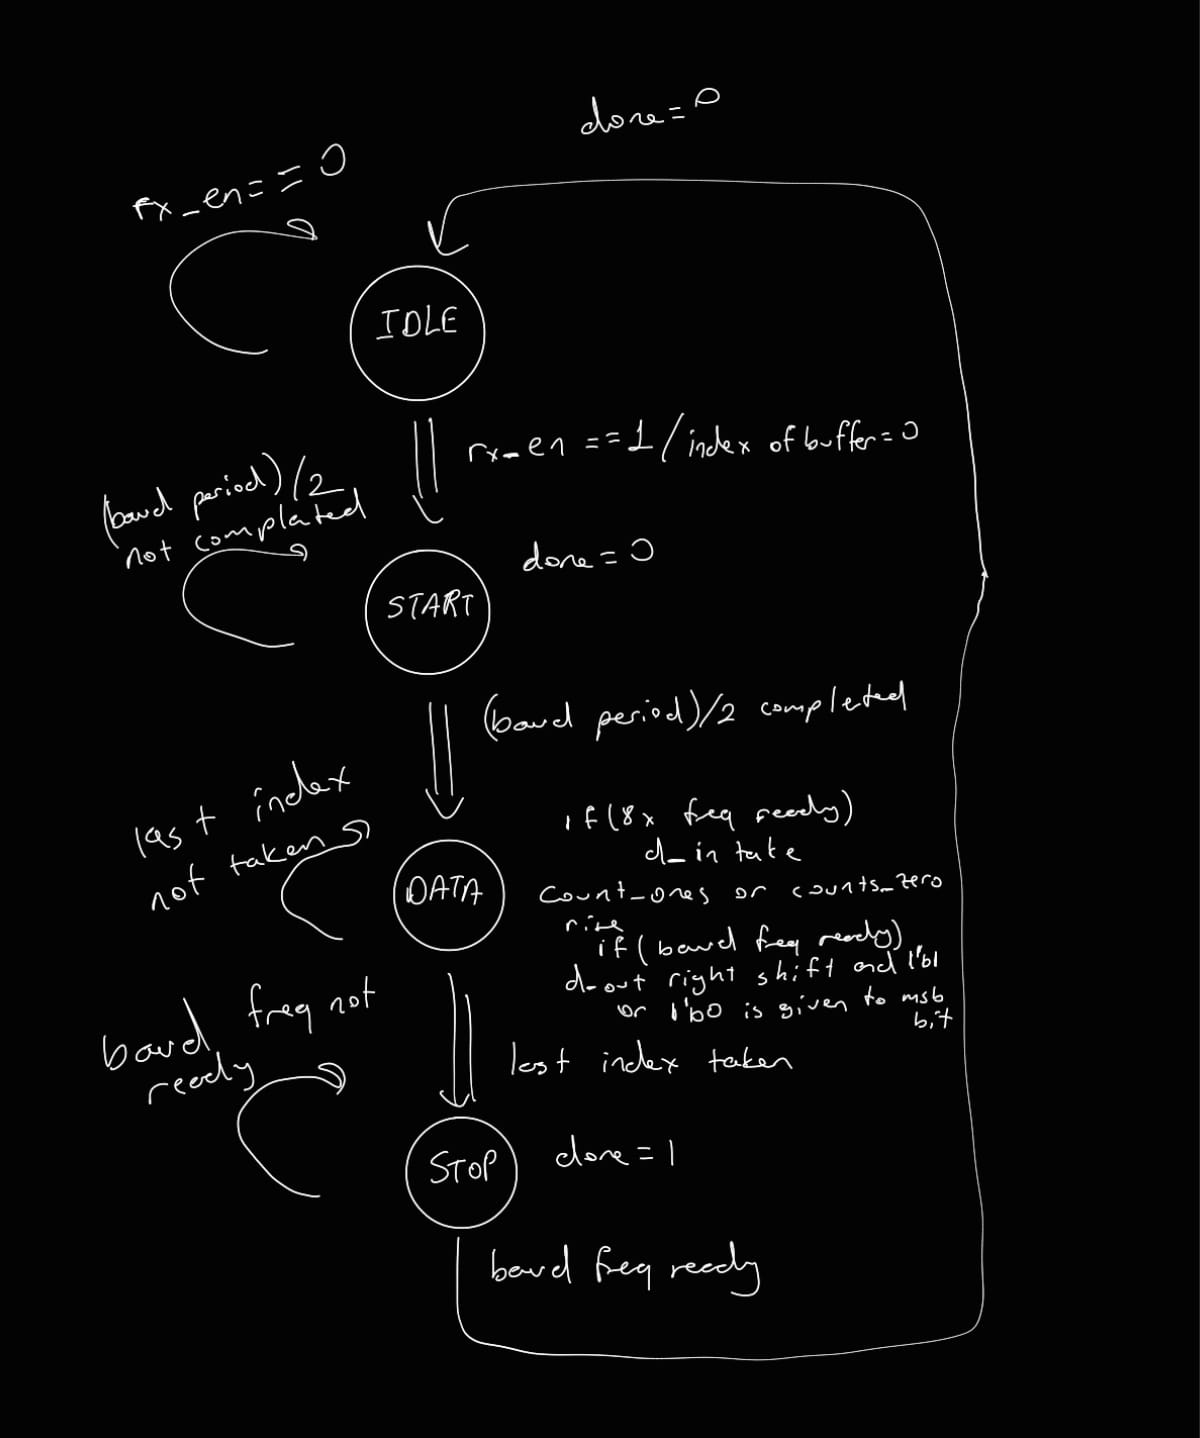 done=0
rx_en==0
IDLE
rx_en ==1/index of buffer=0
(baud period)/2
not complated
done=0
START
(baud period)/2 completed
last index
not taken
if(8x freq ready)
d_in take
DATA
count_ones or counts_zero
rise
if(baud freq ready)
d_out right shift and 1'b1
or 1'b0 is given to msb
bit
baud freq not
ready
last index taken
STOP
done=1
baud freq ready